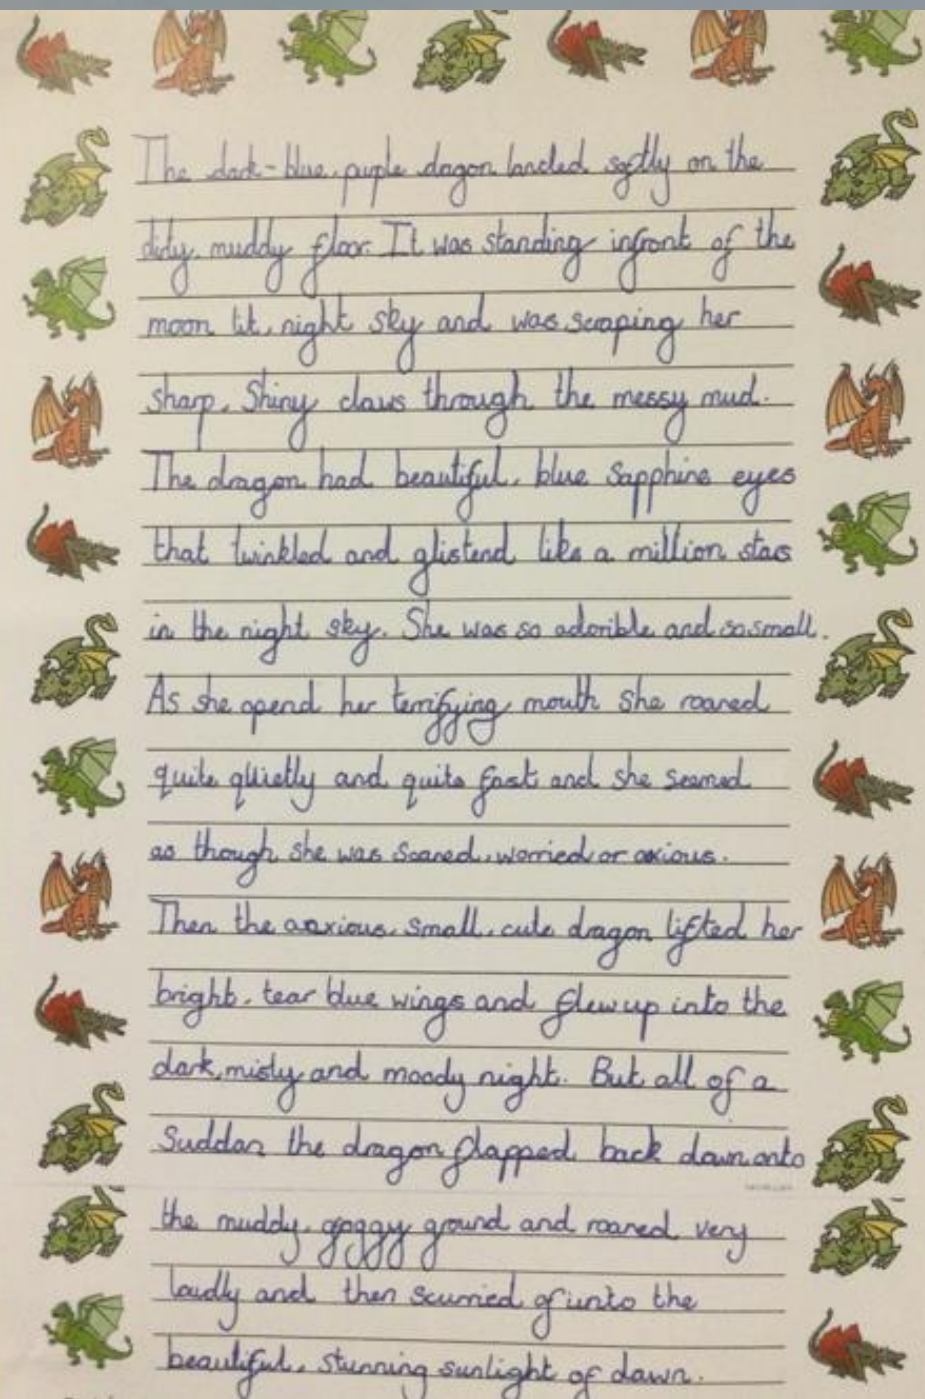 The dark-blue, puple dragon landed softly on the
dirty, muddy floor. It was standing infront of the
moon lit, night sky and was scraping her
sharp, Shiny claws through the messy mud.
The dragon had beautiful, blue Sapphire eyes
that twinkled and glistend like a million stars
in the night sky. She was so adorible and so small.
As she opend her terrifying mouth she roared
quite quietly and quite fast and she seemed
as though she was scared, worried or axious.
Then the axious, small, cute dragon lifted her
bright, tear blue wings and flew up into the
dark, misty and moody night. But all of a
Suddan the dragon flapped back down onto
the muddy, goggy ground and roared very
loudly and then scurried of unto the
beautiful, stunning sunlight of dawn.